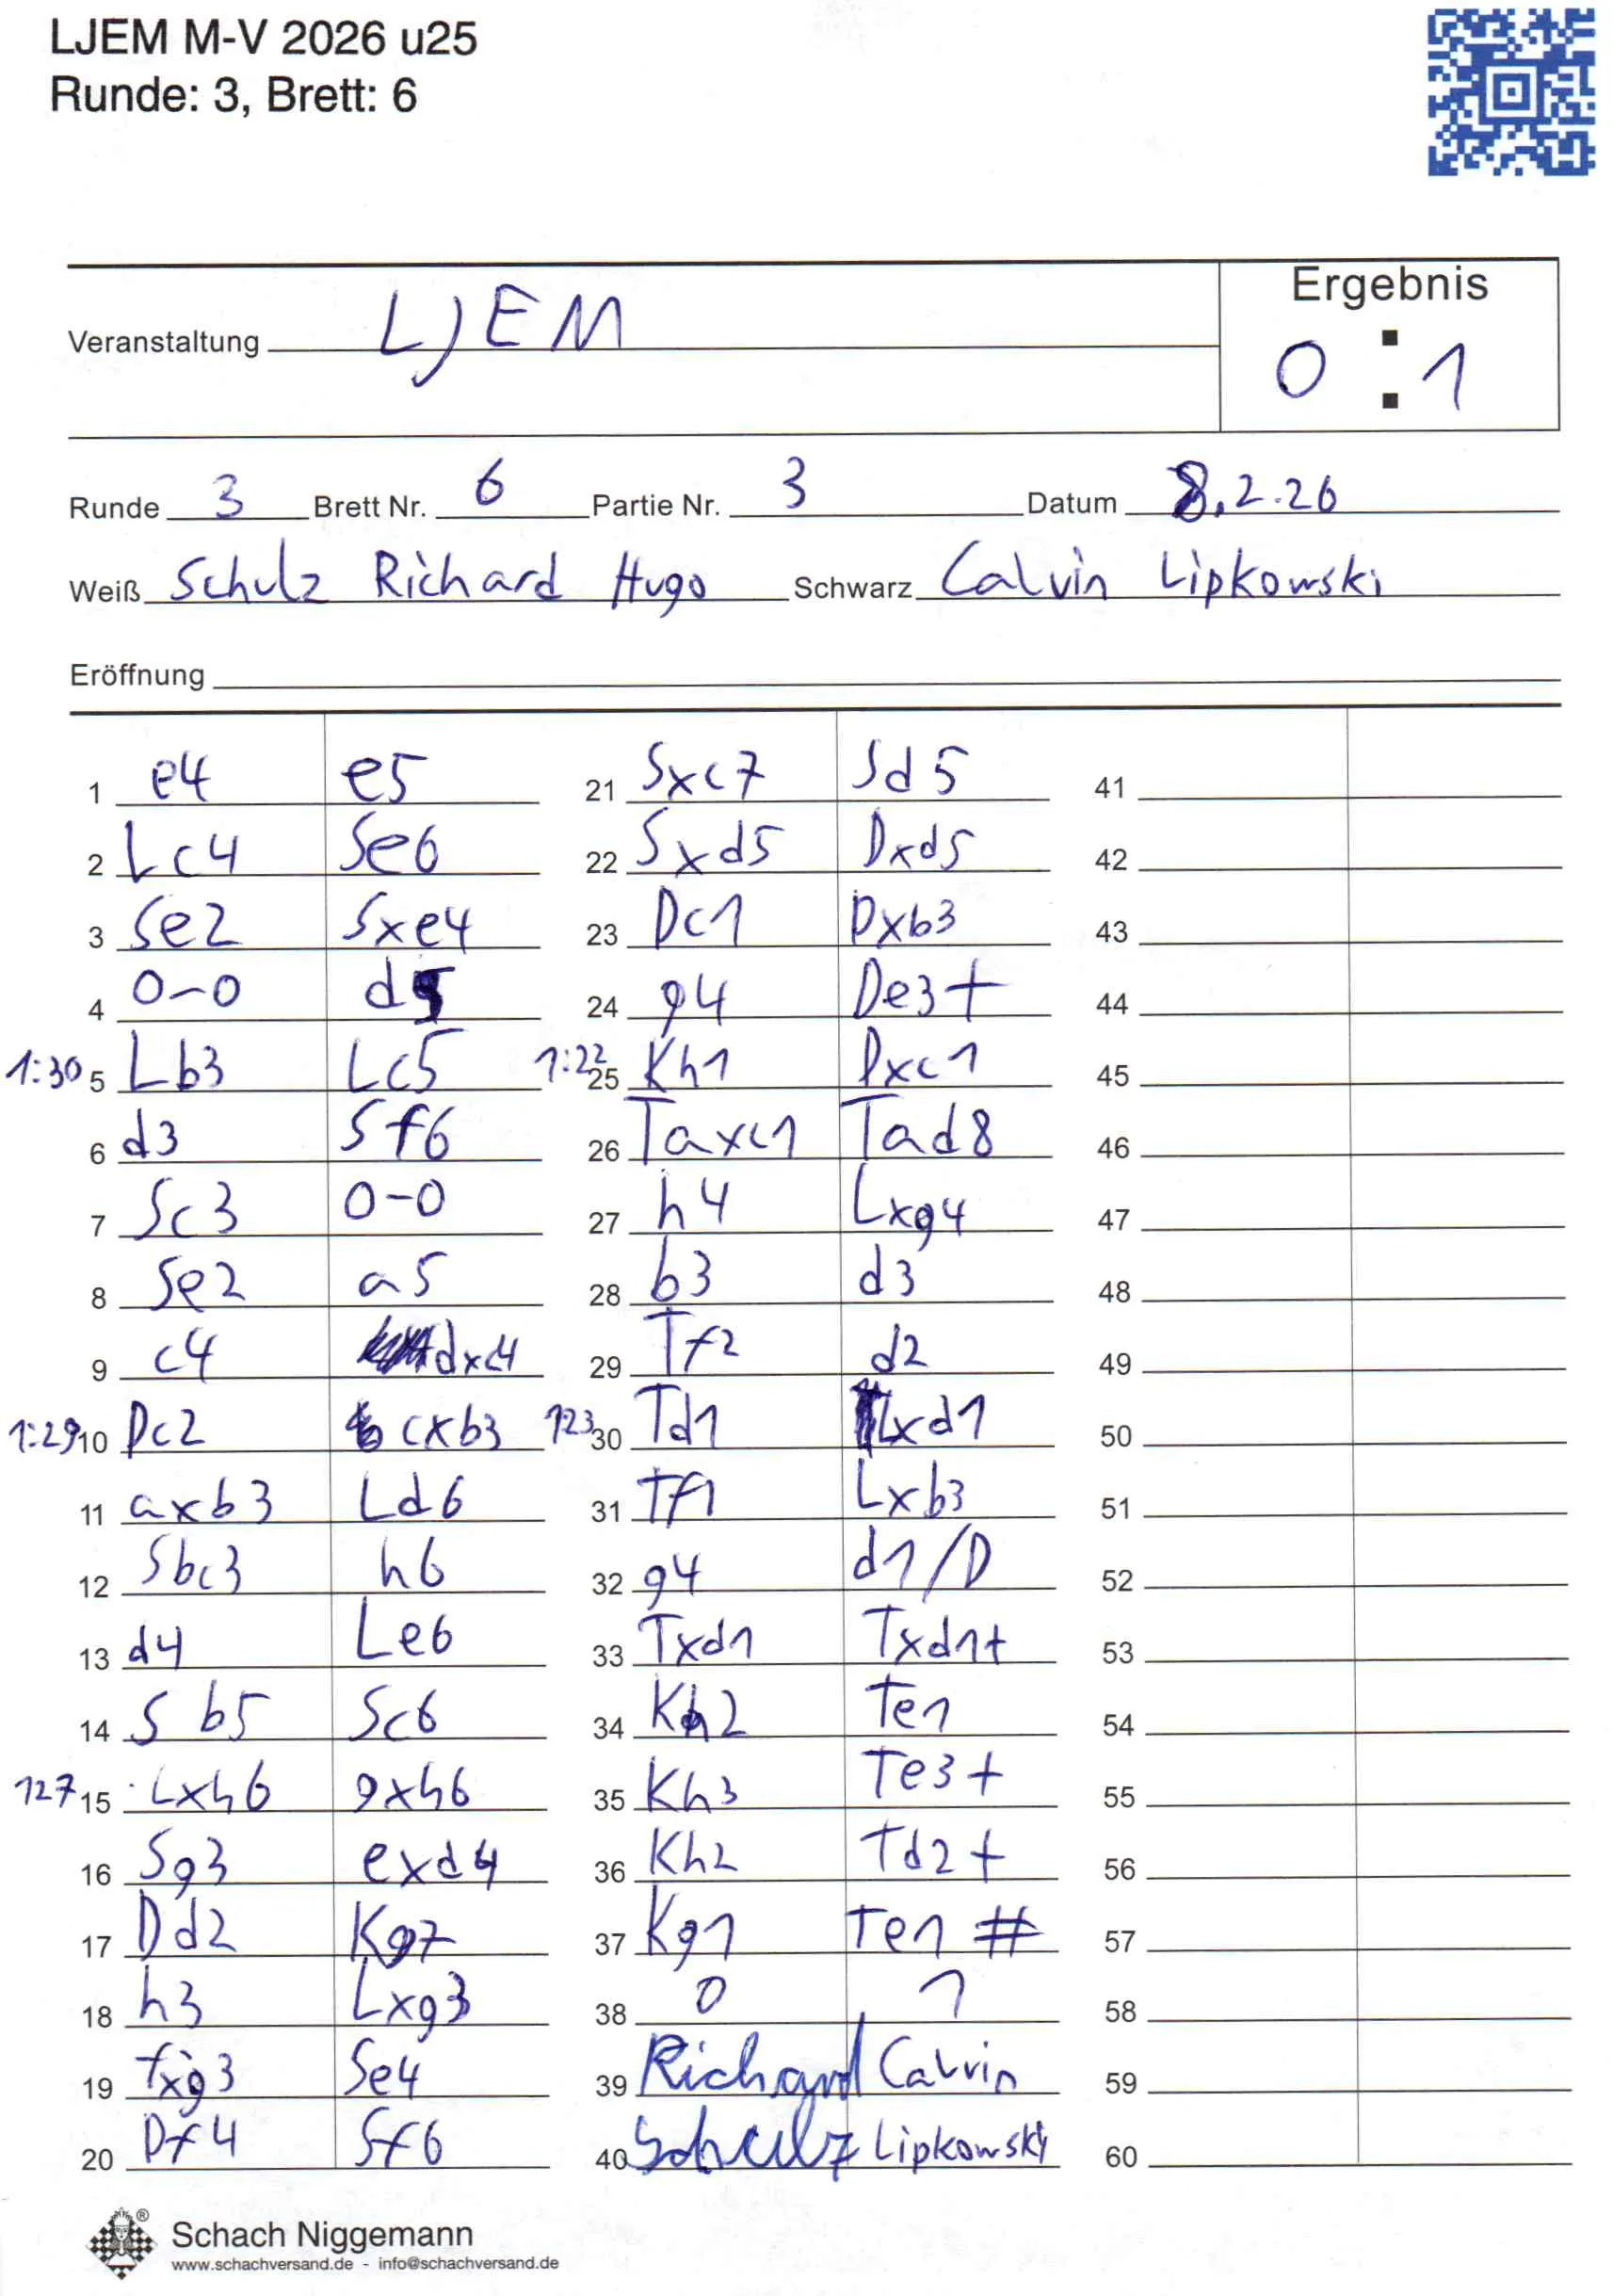 LJEM M-V 2026 u25
Runde: 3, Brett: 6
Ergebnis
Veranstaltung LJEM
0 : 1
Runde 3 Brett Nr. 6 Partie Nr. 3 Datum 8.2.26
Weiß Schulz Richard Hugo Schwarz Calvin Lipkowski
Eröffnung
1 e4 e5 21 Sxc7 Sd5 41
2 Lc4 Se6 22 Sxd5 Dxd5 42
3 Se2 Sxe4 23 Dc1 Dxb3 43
4 0-0 d5 24 g4 De3+ 44
1:30 5 Lb3 Lc5 1:22 25 Kh1 Dxc1 45
6 d3 Sf6 26 Taxc1 Tad8 46
7 Sc3 0-0 27 h4 Lxg4 47
8 Se2 a5 28 b3 d3 48
9 c4 dxc4 29 Tf2 d2 49
1:29 10 Dc2 cxb3 123 30 Td1 Lxd1 50
11 axb3 Ld6 31 Tf1 Lxb3 51
12 Sbc3 h6 32 g4 d1/D 52
13 d4 Le6 33 Txd1 Txd1+ 53
14 Sb5 Sc6 34 Kh2 Te1 54
127 15 Lxh6 gxh6 35 Kh3 Te3+ 55
16 Sg3 exd4 36 Kh2 Td2+ 56
17 Dd2 Kg7 37 Kg1 Te1 # 57
18 h3 Lxg3 38 0 1 58
19 fxg3 Se4 39 Richard Calvin 59
20 Df4 Sf6 40 Schulz Lipkowski 60
Schach Niggemann ®
www.schachversand.de - info@schachversand.de